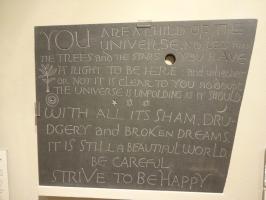 YOU ARE A CHILD OF THE
UNIVERSE, NO LESS THAN
THE TREES AND THE STARS YOU HAVE
A RIGHT TO BE HERE and whether
OR NOT IT IS CLEAR TO YOU NO DOUBT
THE UNIVERSE IS UNFOLDING AS IT SHOULD
WITH ALL ITS SHAM, DRU-
DGERY and BROKEN DREAMS,
IT IS STILL A BEAUTIFUL WORLD.
BE CAREFUL.
STRIVE TO BE HAPPY